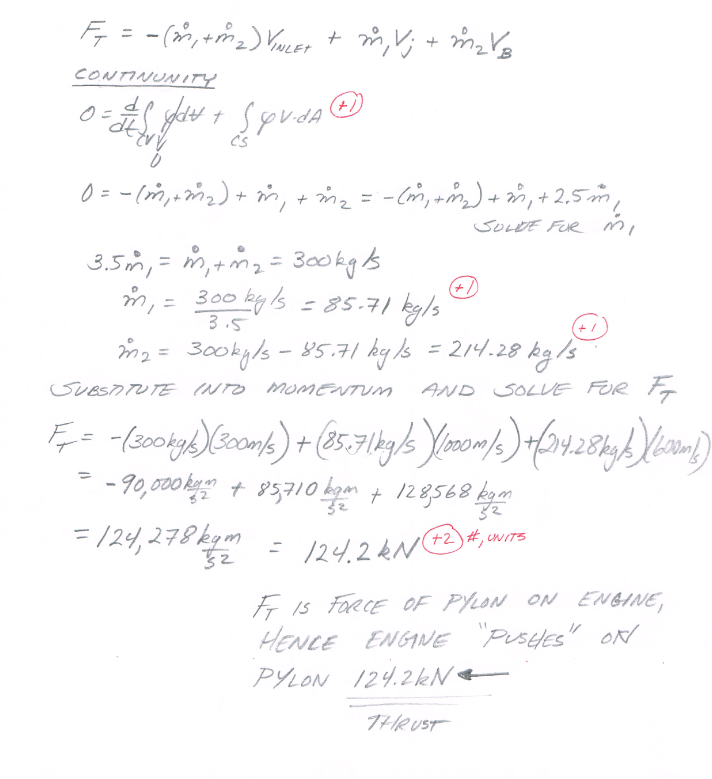 F_T = -(ṁ₁+ṁ₂)V_INLET + ṁ₁V_j + ṁ₂V_B
CONTINUNITY
0 = d/dt ∫_CV ρdV + ∫_CS ρV·dA (+1)
0
0 = -(ṁ₁+ṁ₂) + ṁ₁ + ṁ₂ = -(ṁ₁+ṁ₂) + ṁ₁ + 2.5ṁ₁
SOLVE FOR ṁ₁
3.5ṁ₁ = ṁ₁+ṁ₂ = 300kg/s
ṁ₁ = 300 kg/s / 3.5 = 85.71 kg/s (+1)
ṁ₂ = 300kg/s - 85.71 kg/s = 214.28 kg/s (+1)
SUBSTITUTE INTO MOMENTUM AND SOLVE FOR F_T
F_T = -(300kg/s)(300m/s) + (85.71kg/s)(1000m/s) + (214.28kg/s)(600m/s)
= -90,000 kgm/s² + 85,710 kgm/s² + 128,568 kgm/s²
= 124,278 kgm/s² = 124.2 kN (+2) #, UNITS
F_T IS FORCE OF PYLON ON ENGINE,
HENCE ENGINE "PUSHES" ON
PYLON 124.2kN ←
THRUST